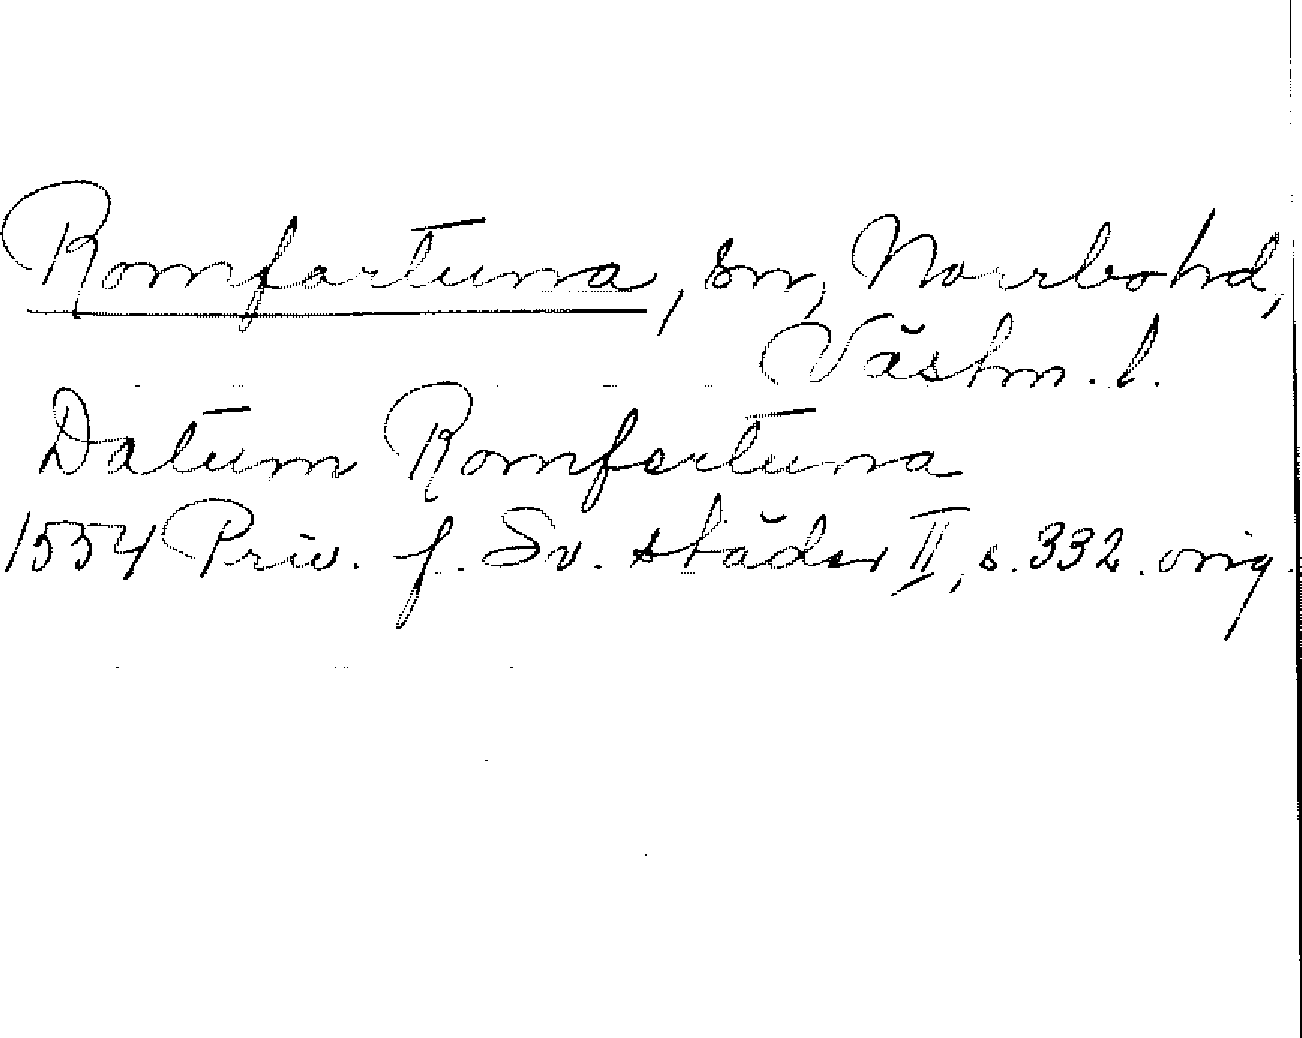 Romfartuna, sn, Norrbo hd,
Västm. l.
Datum Romfertuna
1554 Priv. f. Sv. städer II, s. 332. orig.